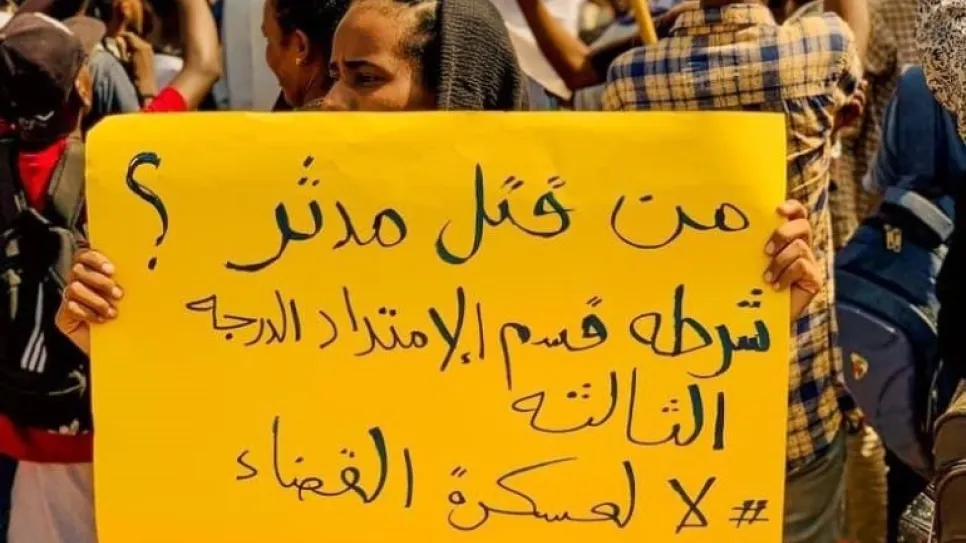 من قتل مدثر ؟
شرطه قسم الإمتداد الدرجه
الثالثه
# لا لعسكرة القضاء